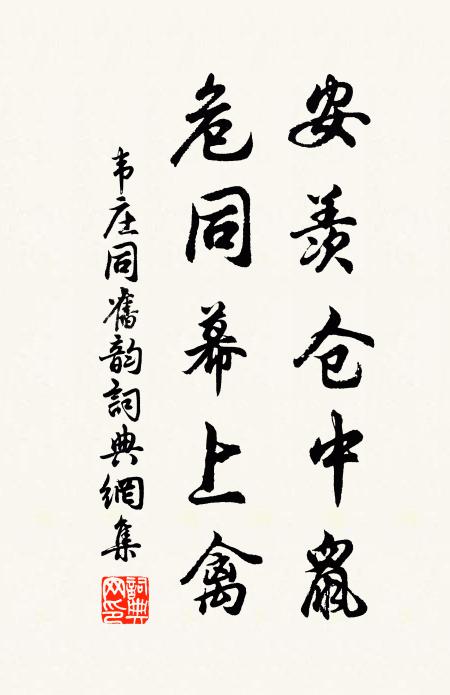 安羡仓中鼠
危同幕上禽
韦庄同旧韵詞典網集
詞典网印